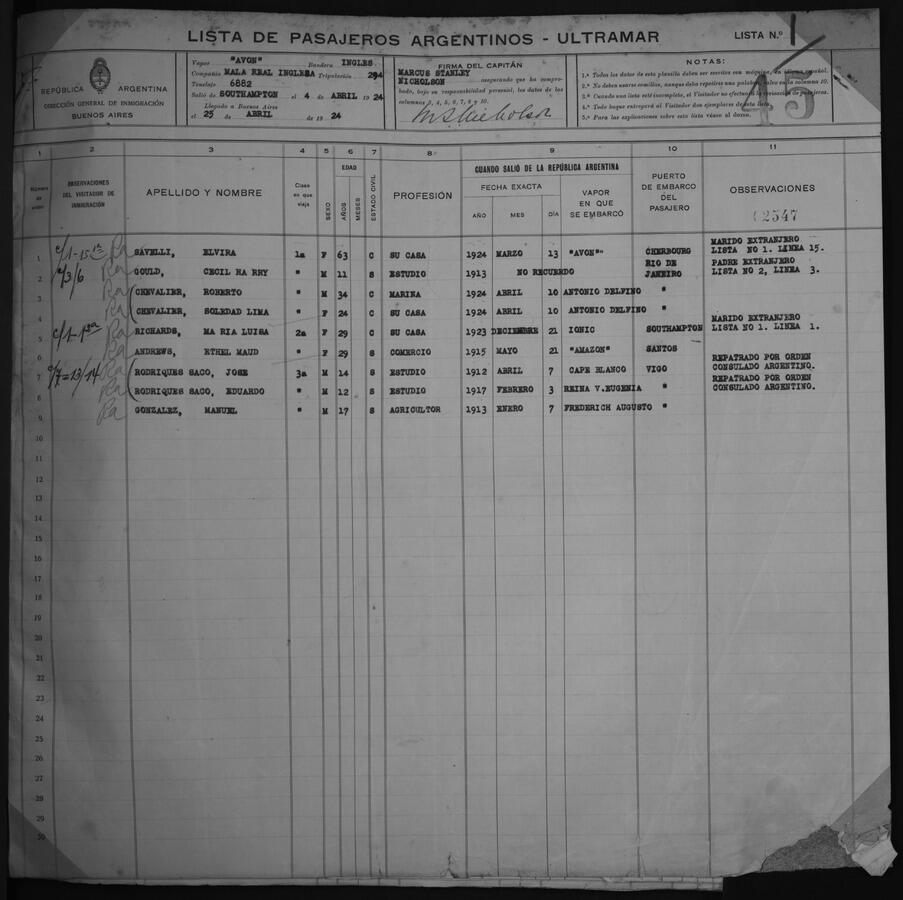 LISTA DE PASAJEROS ARGENTINOS - ULTRAMAR
LISTA N.º 1
REPÚBLICA ARGENTINA
DIRECCIÓN GENERAL DE INMIGRACIÓN
BUENOS AIRES
Vapor "AVON" Bandera INGLES
Compañía MALA REAL INGLESA Tripulación 294
Tonelaje 6882
Salió de SOUTHAMPTON el 4 de ABRIL 1924
Llegado a Buenos Aires
el 25 de ABRIL de 1924
FIRMA DEL CAPITÁN
MARCUS STANLEY
NICHOLSON asegurando que ha compro-
bado, bajo su responsabilidad personal, los datos de las
columnas 3, 4, 5, 6, 7, 8 y 10.
M S Nicholson
NOTAS:
1.ª Todos los datos de esta planilla deben ser escritos con máquina, en idioma español.
2.ª No deben usarse comillas, aunque deba repetirse una palabra, salvo en la columna 10.
3.ª Cuando una lista esté incompleta, el Visitador no efectuará la revisación de pasajeros.
4.ª Todo buque entregará al Visitador dos ejemplares de esta lista.
5.ª Para las explicaciones sobre esta lista véase al dorso.
45
1 2 3 4 5 6 7 8 9 10 11
Número de orden
OBSERVACIONES DEL VISITADOR DE INMIGRACIÓN
APELLIDO Y NOMBRE
Clase en que viaja
SEXO
EDAD
AÑOS
MESES
ESTADO CIVIL
PROFESIÓN
CUANDO SALIÓ DE LA REPÚBLICA ARGENTINA
FECHA EXACTA
AÑO MES DÍA
VAPOR EN QUE SE EMBARCÓ
PUERTO DE EMBARCO DEL PASAJERO
OBSERVACIONES
02547
1 SAVELLI, ELVIRA 1a F 63 C SU CASA 1924 MARZO 13 "AVON" CHERBOURG MARIDO EXTRANJERO LISTA NO 1. LINEA 15.
2 GOULD, CECIL HA RRY " M 11 S ESTUDIO 1913 NO RECUERDO RIO DE JANEIRO PADRE EXTRANJERO LISTA NO 2, LINEA 3.
3 CHEVALIER, ROBERTO " M 34 C MARINA 1924 ABRIL 10 ANTONIO DELFINO "
4 CHEVALIER, SOLEDAD LIMA " F 24 C SU CASA 1924 ABRIL 10 ANTONIO DELFINO "
5 RICHARDS, MA RIA LUISA 2a F 29 C SU CASA 1923 DECIEMBRE 21 IONIC SOUTHAMPTON MARIDO EXTRANJERO LISTA NO 1. LINEA 1.
6 ANDREWS, ETHEL MAUD " F 29 S COMERCIO 1915 MAYO 21 "AMAZON" SANTOS
7 RODRIQUES SACO, JOSE 3a M 14 S ESTUDIO 1912 ABRIL 7 CAPE BLANCO VIGO REPATRADO POR ORDEN CONSULADO ARGENTINO.
8 RODRIQUES SACO, EDUARDO " M 12 S ESTUDIO 1917 FEBRERO 3 REINA V.EUGENIA " REPATRADO POR ORDEN CONSULADO ARGENTINO.
9 GONZALEZ, MANUEL " M 17 S AGRICULTOR 1913 ENERO 7 FREDERICH AUGUSTO "
10
11
12
13
14
15
16
17
18
19
20
21
22
23
24
25
26
27
28
29
30